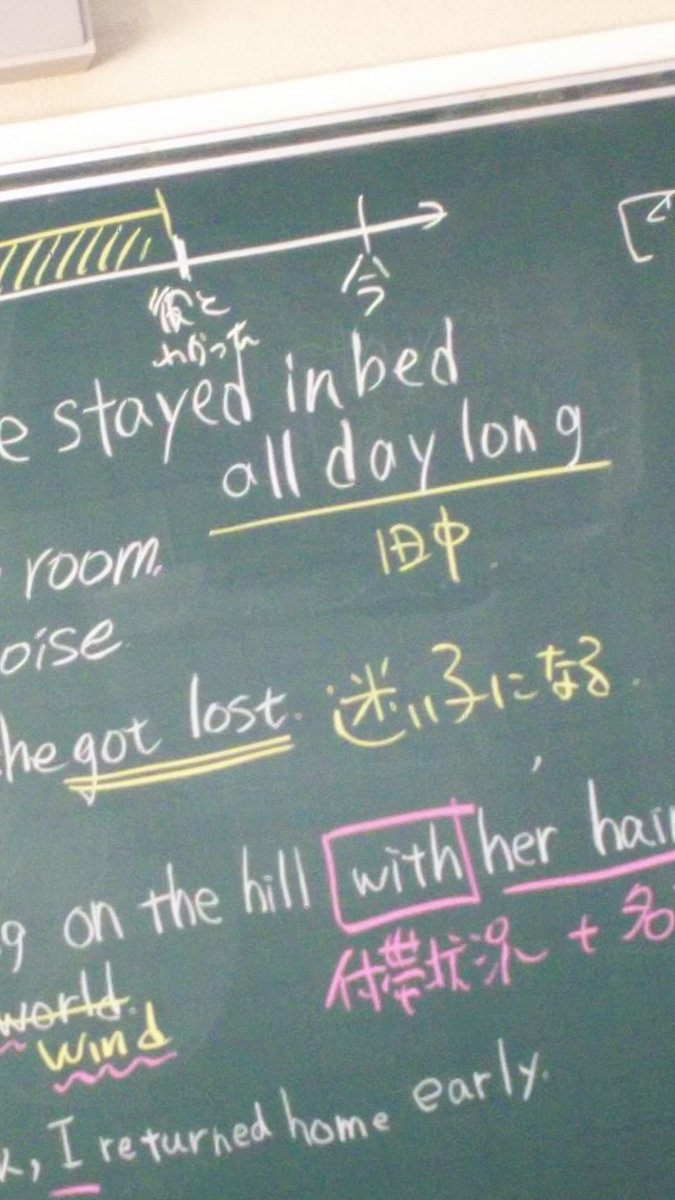 今
彼と
わかった
e stayed in bed
all day long
1日中.
room.
oise
he got lost. 迷い子になる.
g on the hill with her hair
付帯状況 + 名
world.
wind
k, I returned home early.